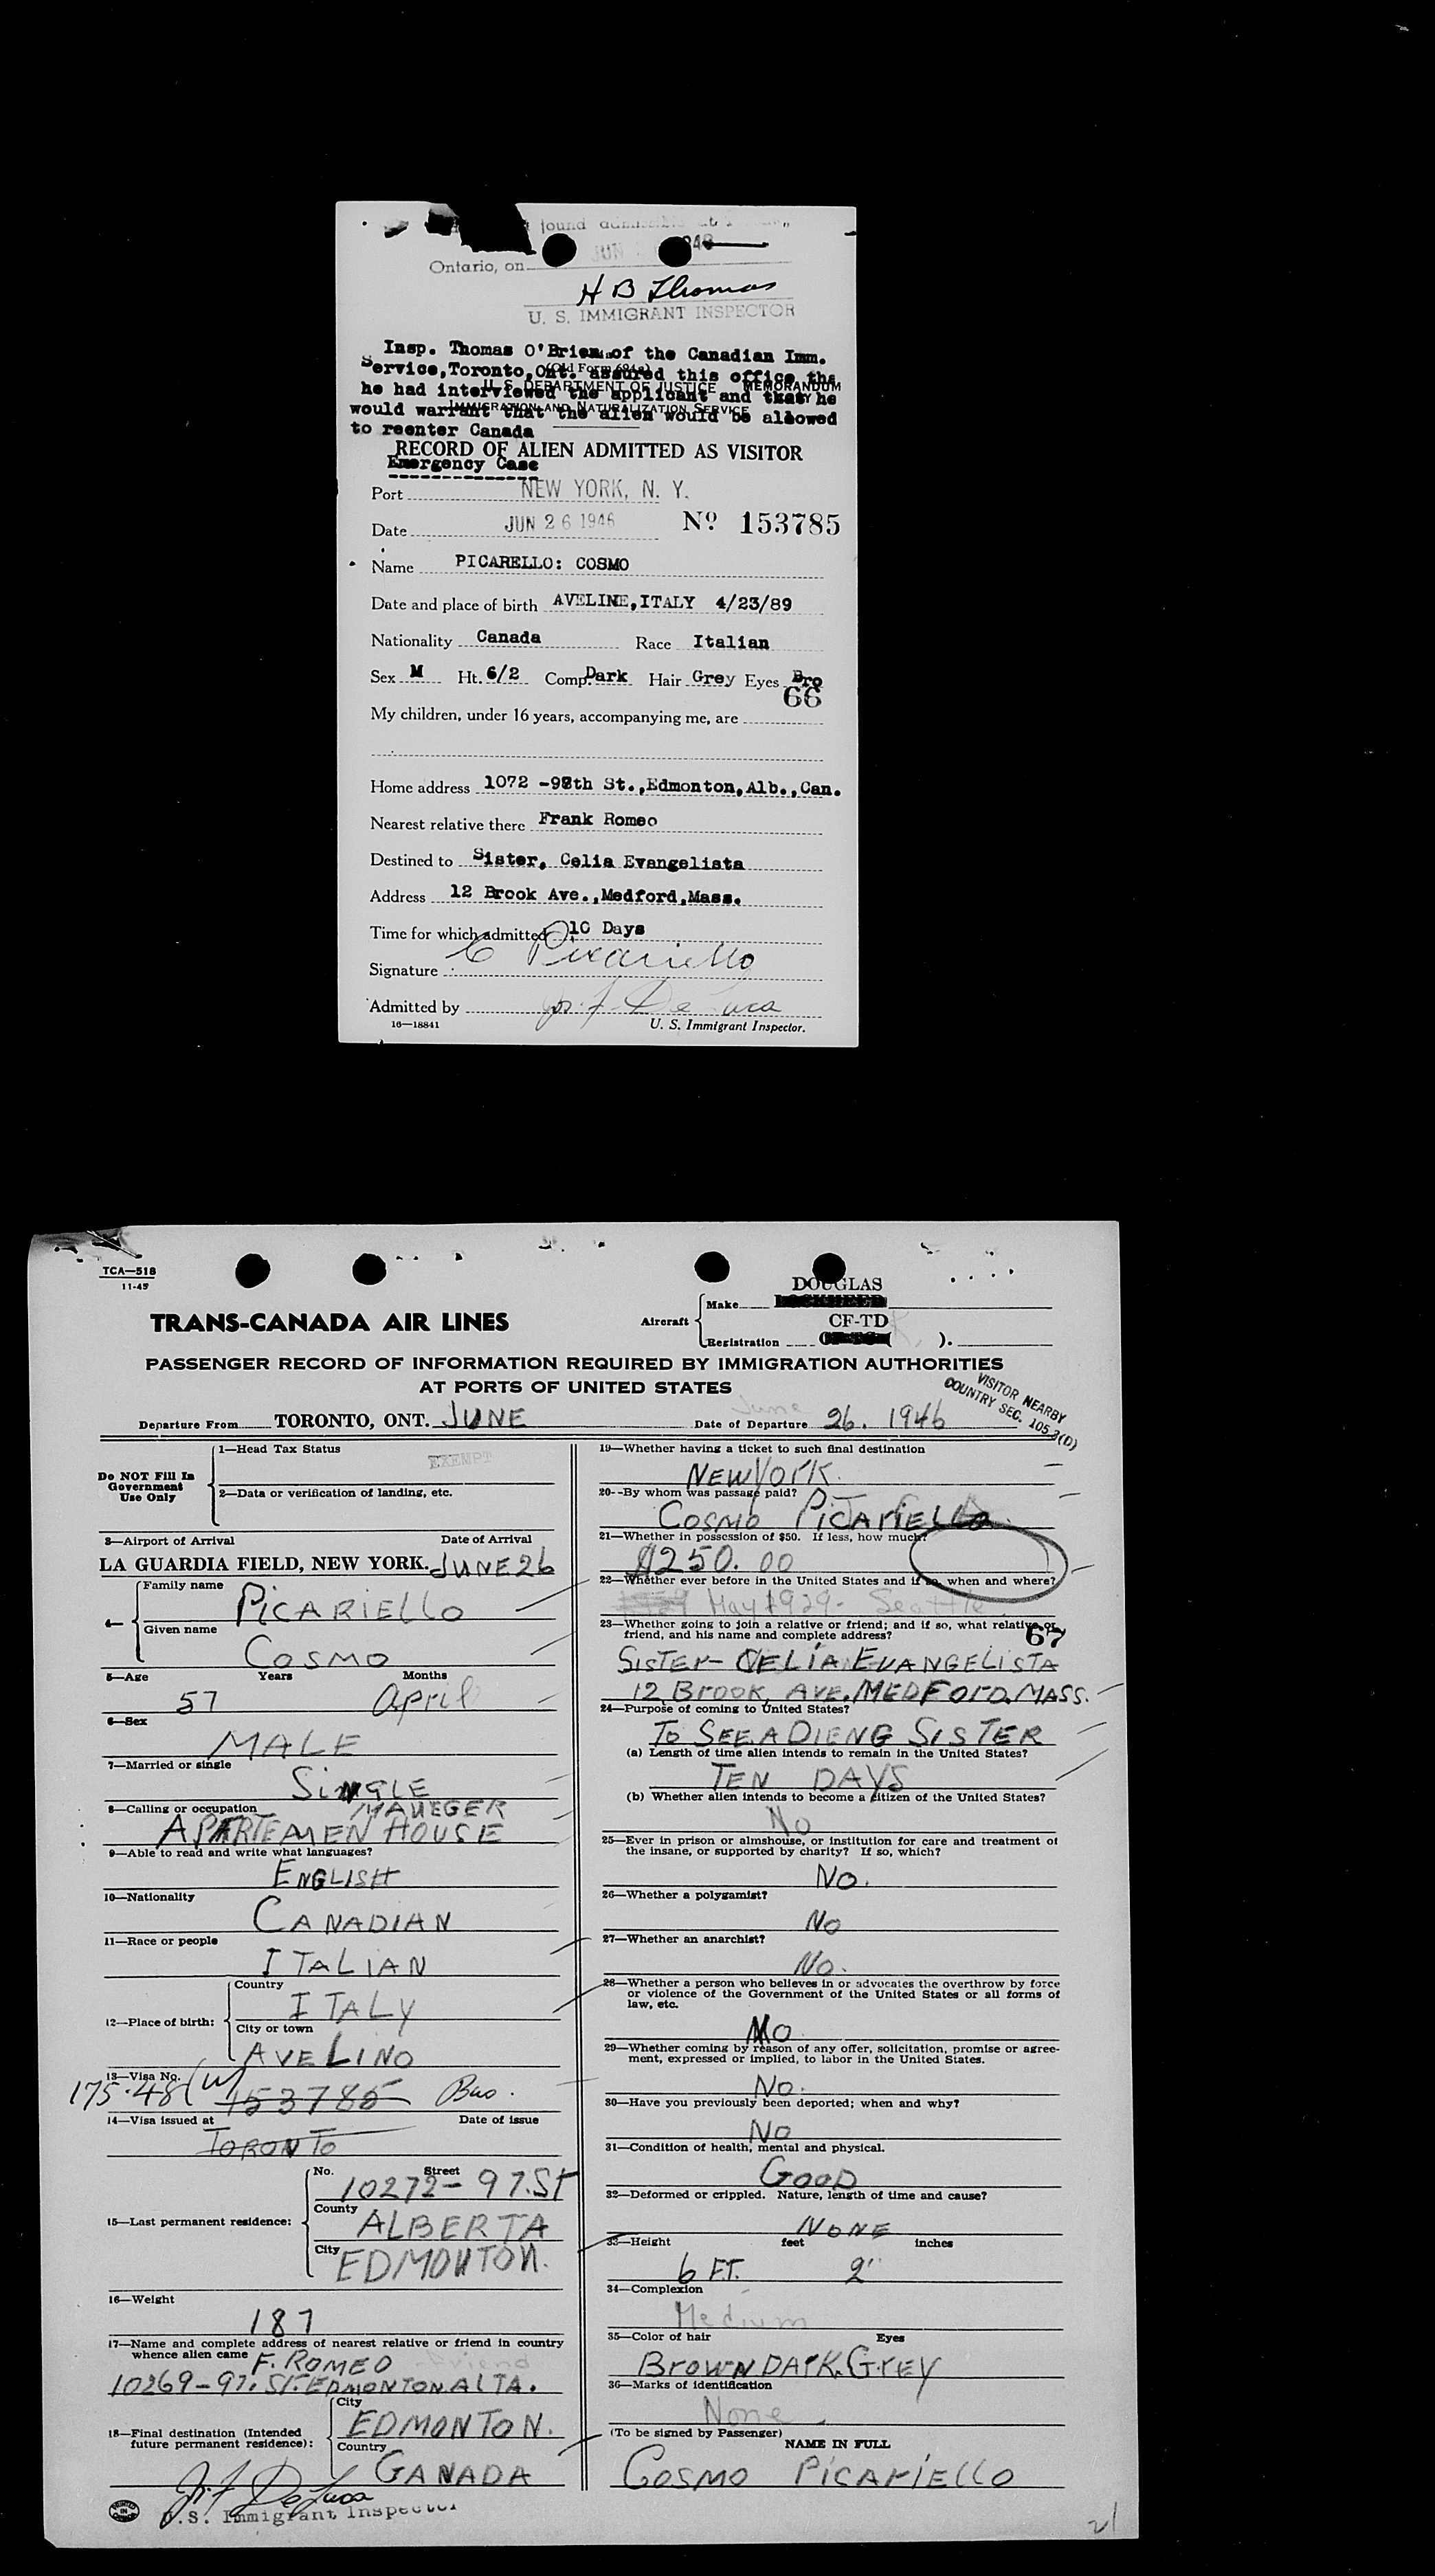 found
JUN
Ontario, on
H B Thomas
U. S. IMMIGRANT INSPECTOR
Insp. Thomas O'Brien of the Canadian Imm.
Service,Toronto,Ont. assured this office tha
(Old Form 681a)
he had interviewed the applicant and that he
U. S. DEPARTMENT OF JUSTICE MEMORANDUM
would warrant that the alien would be allowed
IMMIGRATION AND NATURALIZATION SERVICE
to reenter Canada
RECORD OF ALIEN ADMITTED AS VISITOR
Emergency Case
Port NEW YORK, N. Y.
Date JUN 26 1946 No 153785
Name PICARELLO: COSMO
Date and place of birth AVELINE,ITALY 4/23/89
Nationality Canada Race Italian
Sex M Ht. 6/2 Comp. Dark Hair Grey Eyes Bro
66
My children, under 16 years, accompanying me, are
Home address 1072 -98th St.,Edmonton,Alb.,Can.
Nearest relative there Frank Romeo
Destined to Sister, Celia Evangelista
Address 12 Brook Ave.,Medford,Mass.
Time for which admitted 10 Days
Signature C Picariello
Admitted by Jos. F. DeLuca
16—18841 U. S. Immigrant Inspector.
TCA—518
11-45
DOUGLAS
TRANS-CANADA AIR LINES
Aircraft Make
CF-TD
Registration ( ).
PASSENGER RECORD OF INFORMATION REQUIRED BY IMMIGRATION AUTHORITIES
AT PORTS OF UNITED STATES
VISITOR NEARBY
COUNTRY SEC. 105.3(D)
Departure From TORONTO, ONT. JUNE Date of Departure June 26. 1946
Do NOT Fill In Government Use Only
1—Head Tax Status EXEMPT
2—Data or verification of landing, etc.
3—Airport of Arrival Date of Arrival
LA GUARDIA FIELD, NEW YORK. JUNE 26
4— Family name PICARIELLO
Given name COSMO
5—Age Years Months
57 April
6—Sex
MALE
7—Married or single
SINGLE
8—Calling or occupation MANEGER
APARTEMEN HOUSE
9—Able to read and write what languages?
ENGLISH
10—Nationality
CANADIAN
11—Race or people
ITALIAN
12—Place of birth: Country
ITALY
City or town
AVELINO
13—Visa No.
175.48 (W) 153785 Bus.
14—Visa issued at Date of issue
TORONTO
15—Last permanent residence: No. Street
10272-97.St
County
ALBERTA
City
EDMONTON.
16—Weight
187
17—Name and complete address of nearest relative or friend in country
whence alien came F. ROMEO friend
10269-97. ST. EDMONTON ALTA.
18—Final destination (Intended future permanent residence): City
EDMONTON.
Country
CANADA
Jos. F. DeLuca
U.S. Immigrant Inspector
19—Whether having a ticket to such final destination
NEW YORK.
20--By whom was passage paid?
COSMO PICARIELLO
21—Whether in possession of $50. If less, how much?
$250.00
22—Whether ever before in the United States and if so, when and where?
May 1929- Seattle
23—Whether going to join a relative or friend; and if so, what relative or
friend, and his name and complete address?
67
SISTER- CELIA EVANGELISTA
12 BROOK AVE. MEDFORD. MASS.
24—Purpose of coming to United States?
TO SEE A DIENG SISTER
(a) Length of time alien intends to remain in the United States?
TEN DAYS
(b) Whether alien intends to become a citizen of the United States?
No
25—Ever in prison or almshouse, or institution for care and treatment of
the insane, or supported by charity? If so, which?
No.
26—Whether a polygamist?
No
27—Whether an anarchist?
No.
28—Whether a person who believes in or advocates the overthrow by force
or violence of the Government of the United States or all forms of
law, etc.
No
29—Whether coming by reason of any offer, solicitation, promise or agree-
ment, expressed or implied, to labor in the United States.
No.
30—Have you previously been deported; when and why?
No
31—Condition of health, mental and physical.
GOOD
32—Deformed or crippled. Nature, length of time and cause?
NONE
33—Height feet inches
6 FT. 2"
34—Complexion
Medium
35—Color of hair Eyes
BROWN DARK. GREY
36—Marks of identification
None
(To be signed by Passenger)
NAME IN FULL
COSMO PICARIELLO
21